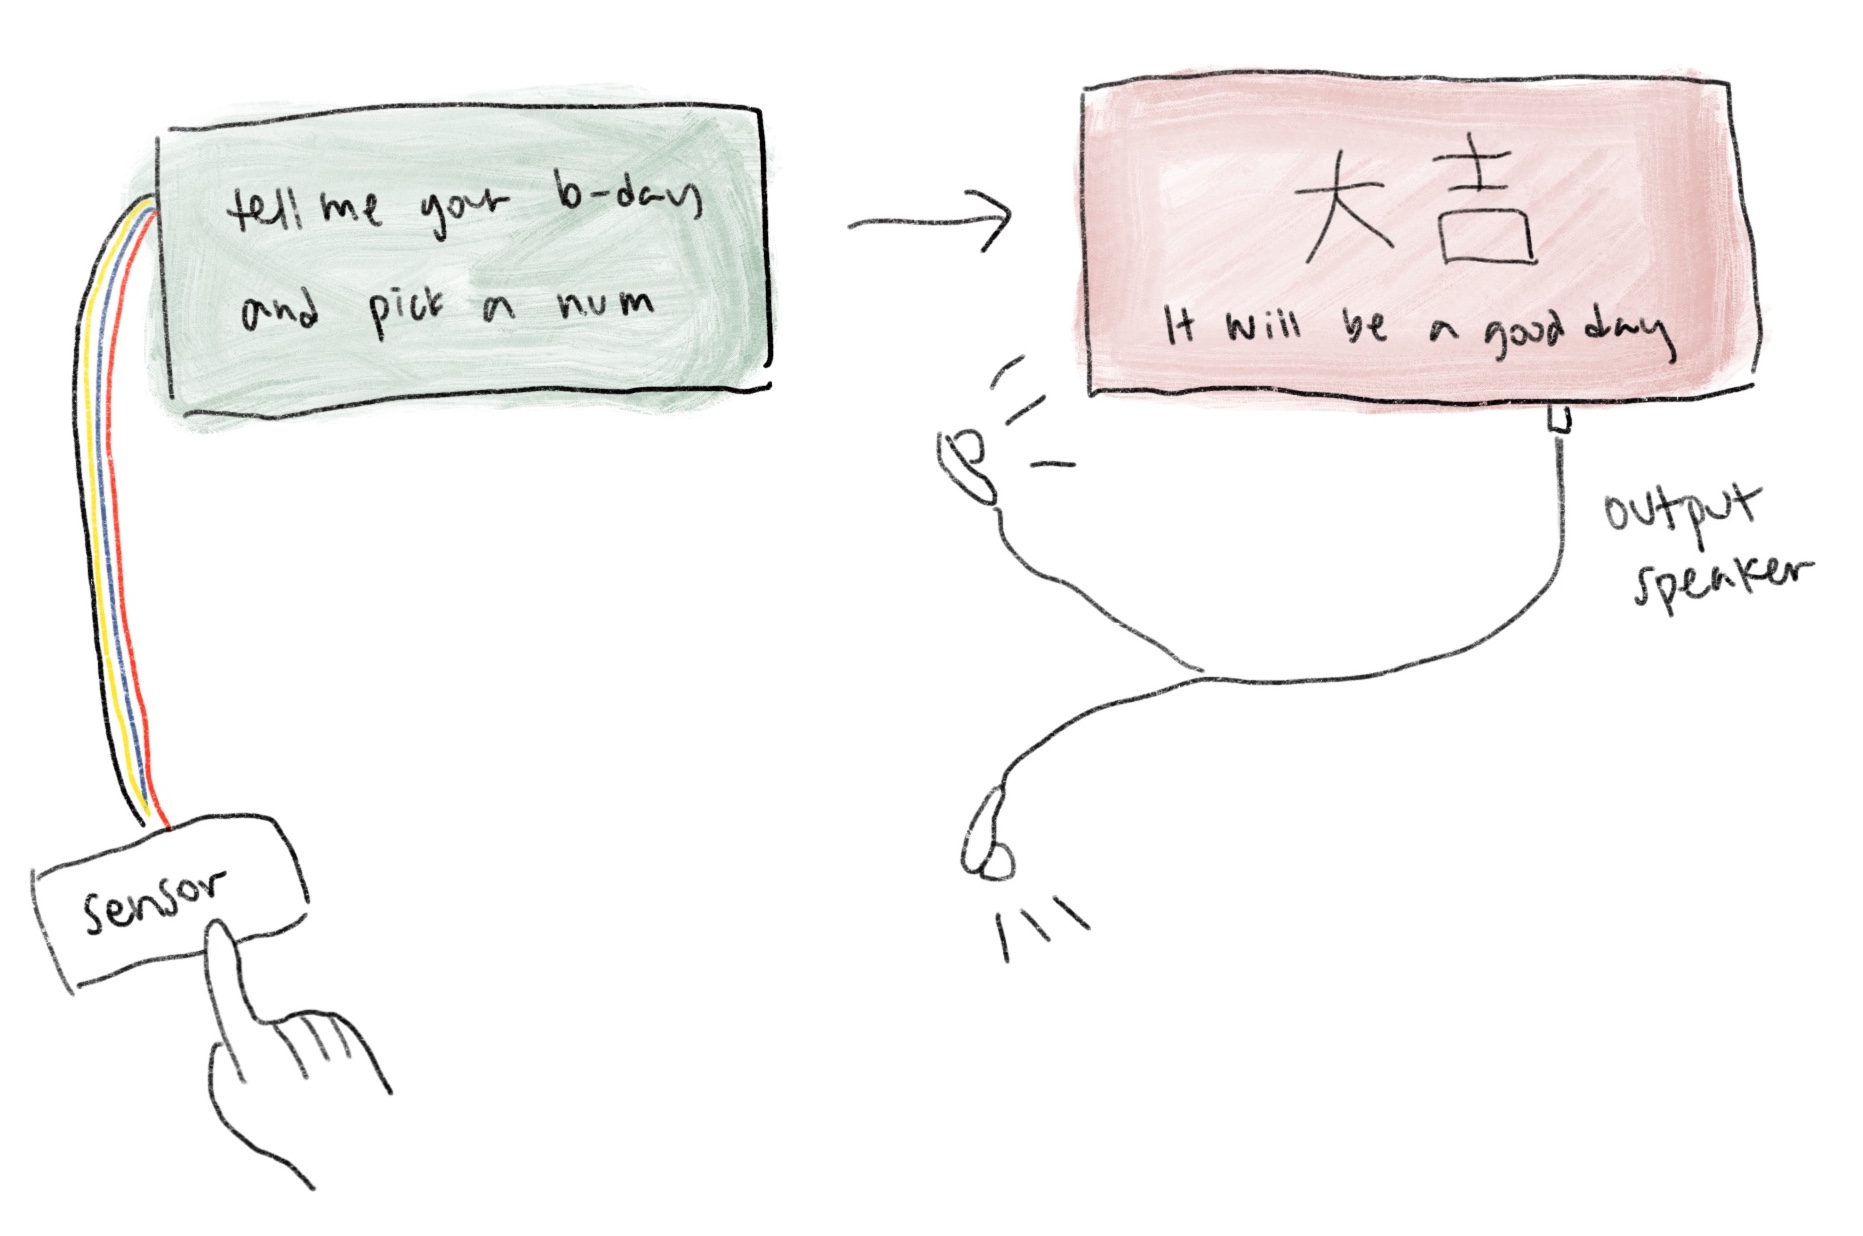 tell me your b-day
and pick a num
大吉
It will be a good day
output
speaker
sensor